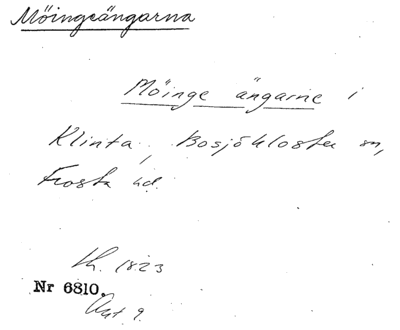 Möingeängarna
Möinge ängarne i
Klinta, Bosjökloster sn,
Frosta hd.
h. 1823
Nr 6810.
Akt 9.